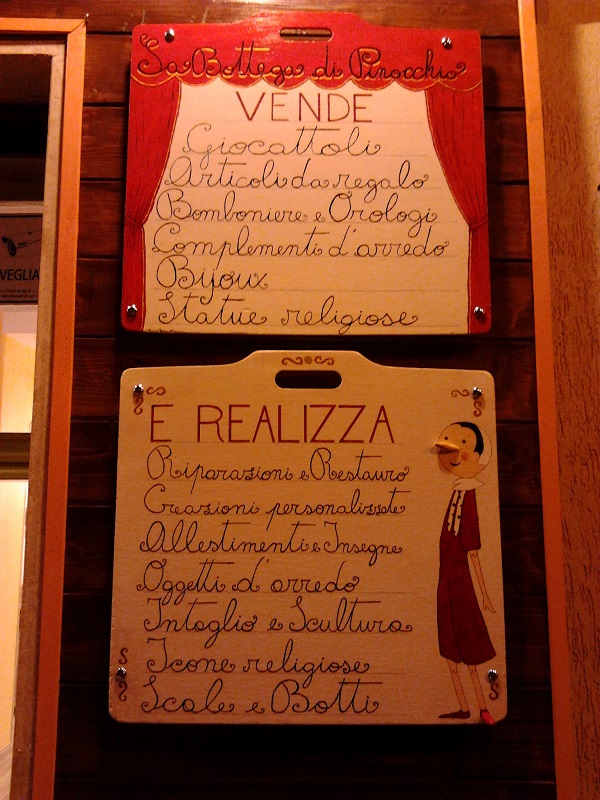 La Bottega di Pinocchio
VENDE
Giocattoli
Articoli da regalo
Bomboniere e Orologi
Complementi d'arredo
Bijoux
Statue religiose
E REALIZZA
Riparazioni e Restauro
Creazioni personalizzate
Allestimenti e Insegne
Oggetti d'arredo
Intaglio e Scultura
Icone religiose
Scale e Botti
VEGLIA